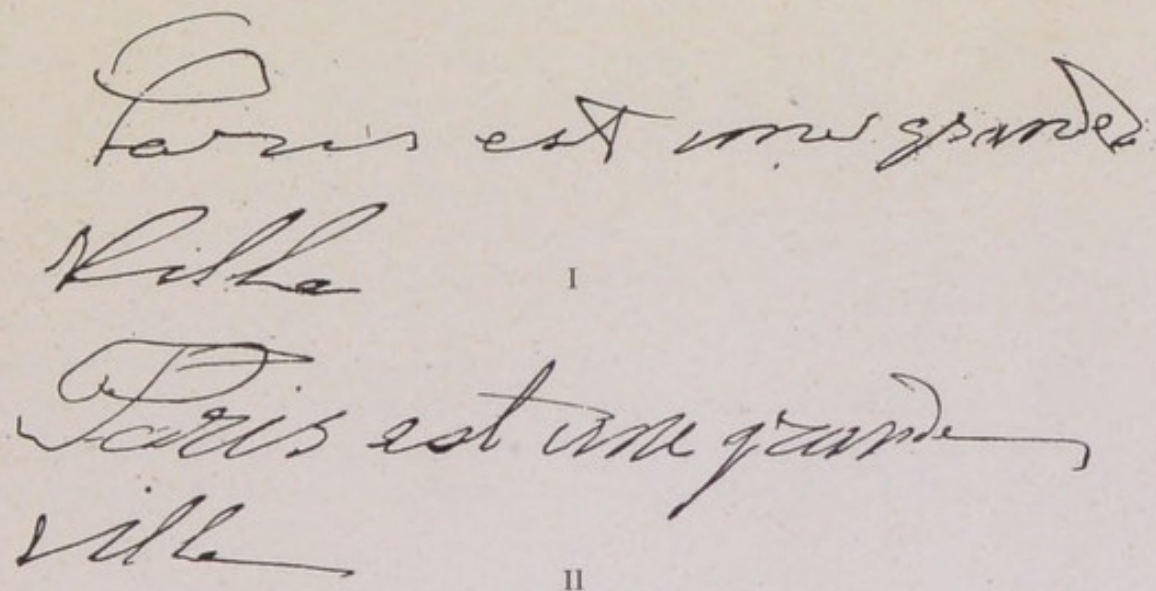 Paris est une grande
Ville
I
Paris est une grande
ville
II